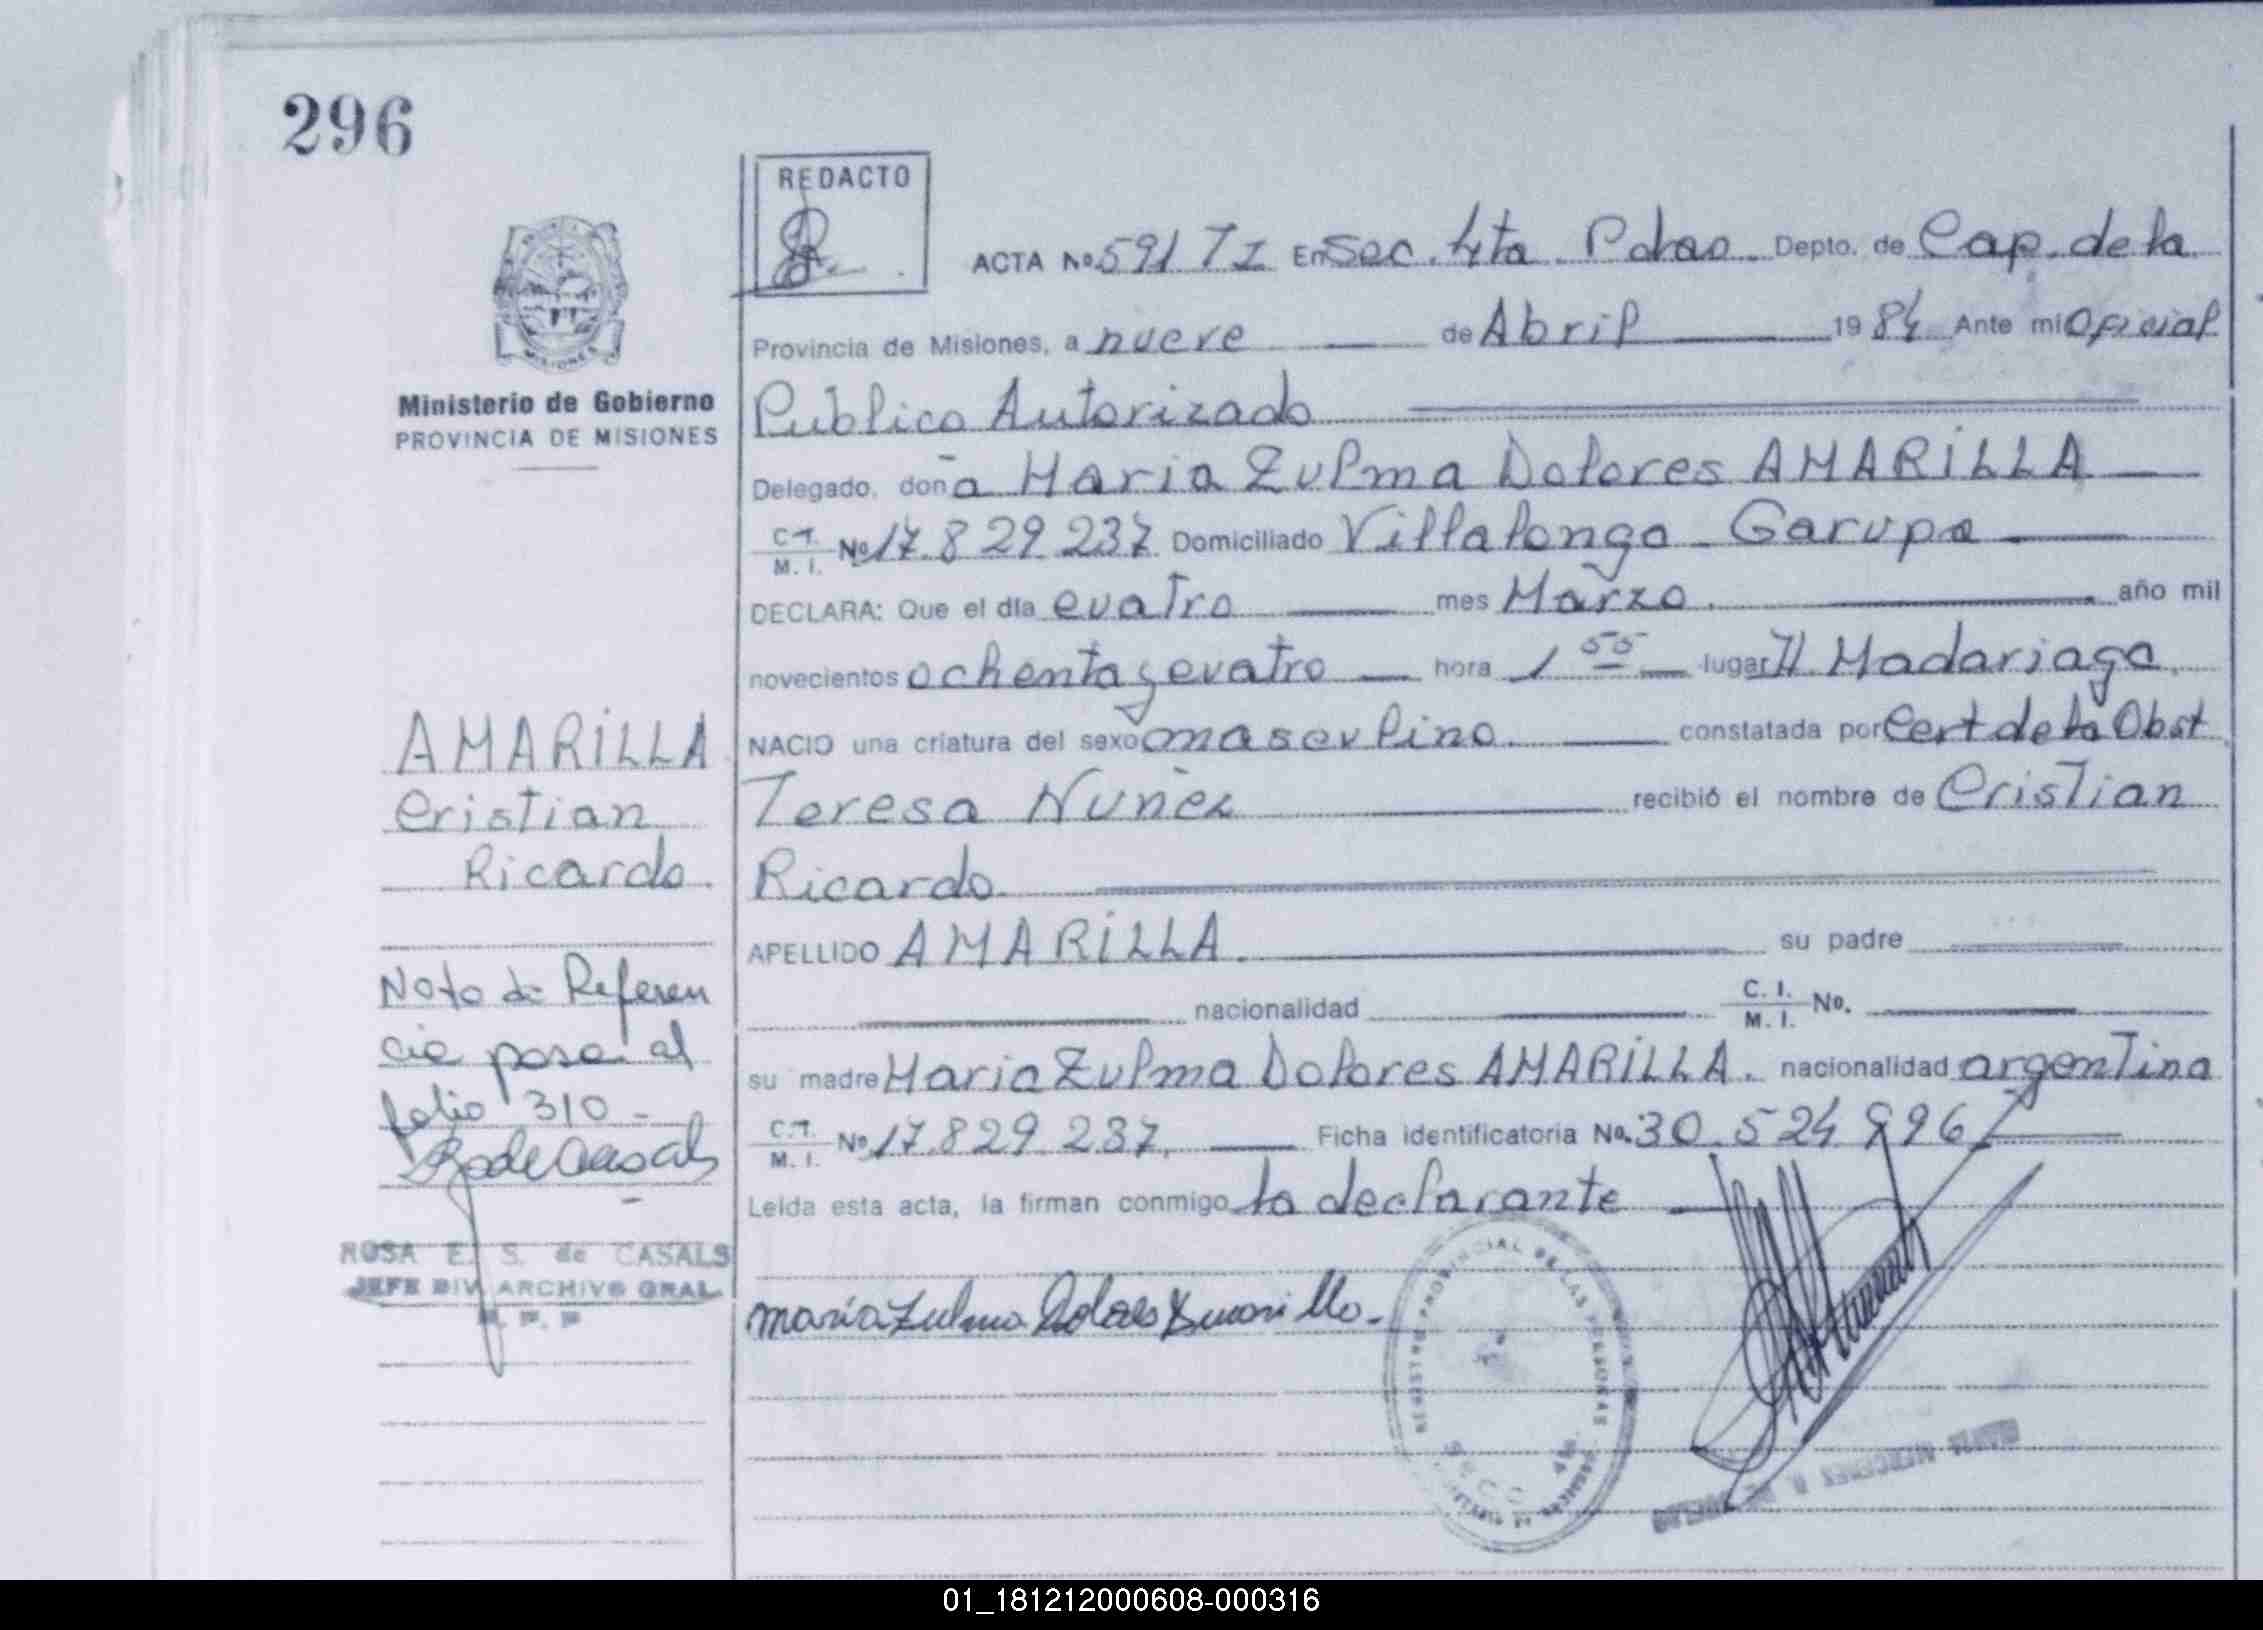 296
REDACTO
ACTA Nº 591 T I En Sec. 4ta Pdas. Depto. de Cap. de la
Provincia de Misiones, a nueve de Abril 1984 Ante mi Oficial
Publico Autorizado
Delegado, doña Maria Zulma Dolores AMARILLA
C.I. M. I. Nº 17.829.237 Domiciliado Villalonga - Garupa
DECLARA: Que el día cuatro mes Marzo. año mil
novecientos ochenta y cuatro hora 1 55 lugar H. Madariaga.
NACIO una criatura del sexo masculino. constatada por Cert de la Obst
Teresa Nuñez recibió el nombre de Cristian
Ricardo.
APELLIDO AMARILLA. su padre
nacionalidad C. I. M. I. Nº.
su madre Maria Zulma Dolores AMARILLA. nacionalidad argentina
C.I. M. I. Nº 17.829.237, Ficha identificatoria Nº. 30.524.996
Leída esta acta, la firman conmigo la declarante
maria Zulma Dolores Amarilla.
Ministerio de Gobierno
PROVINCIA DE MISIONES
MISIONES
AMARILLA
Cristian
Ricardo.
Nota de Referen
cia pasa al
folio 310 -
R de Casals
ROSA E. S. de CASALS
JEFE DIV ARCHIVO GRAL.
REGISTRO PROVINCIAL DE LAS PERSONAS
01_181212000608-000316